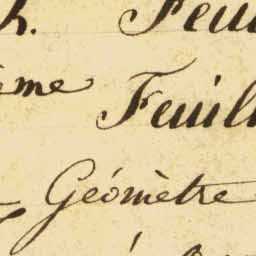 Feui
ème Feuill
Géomètre